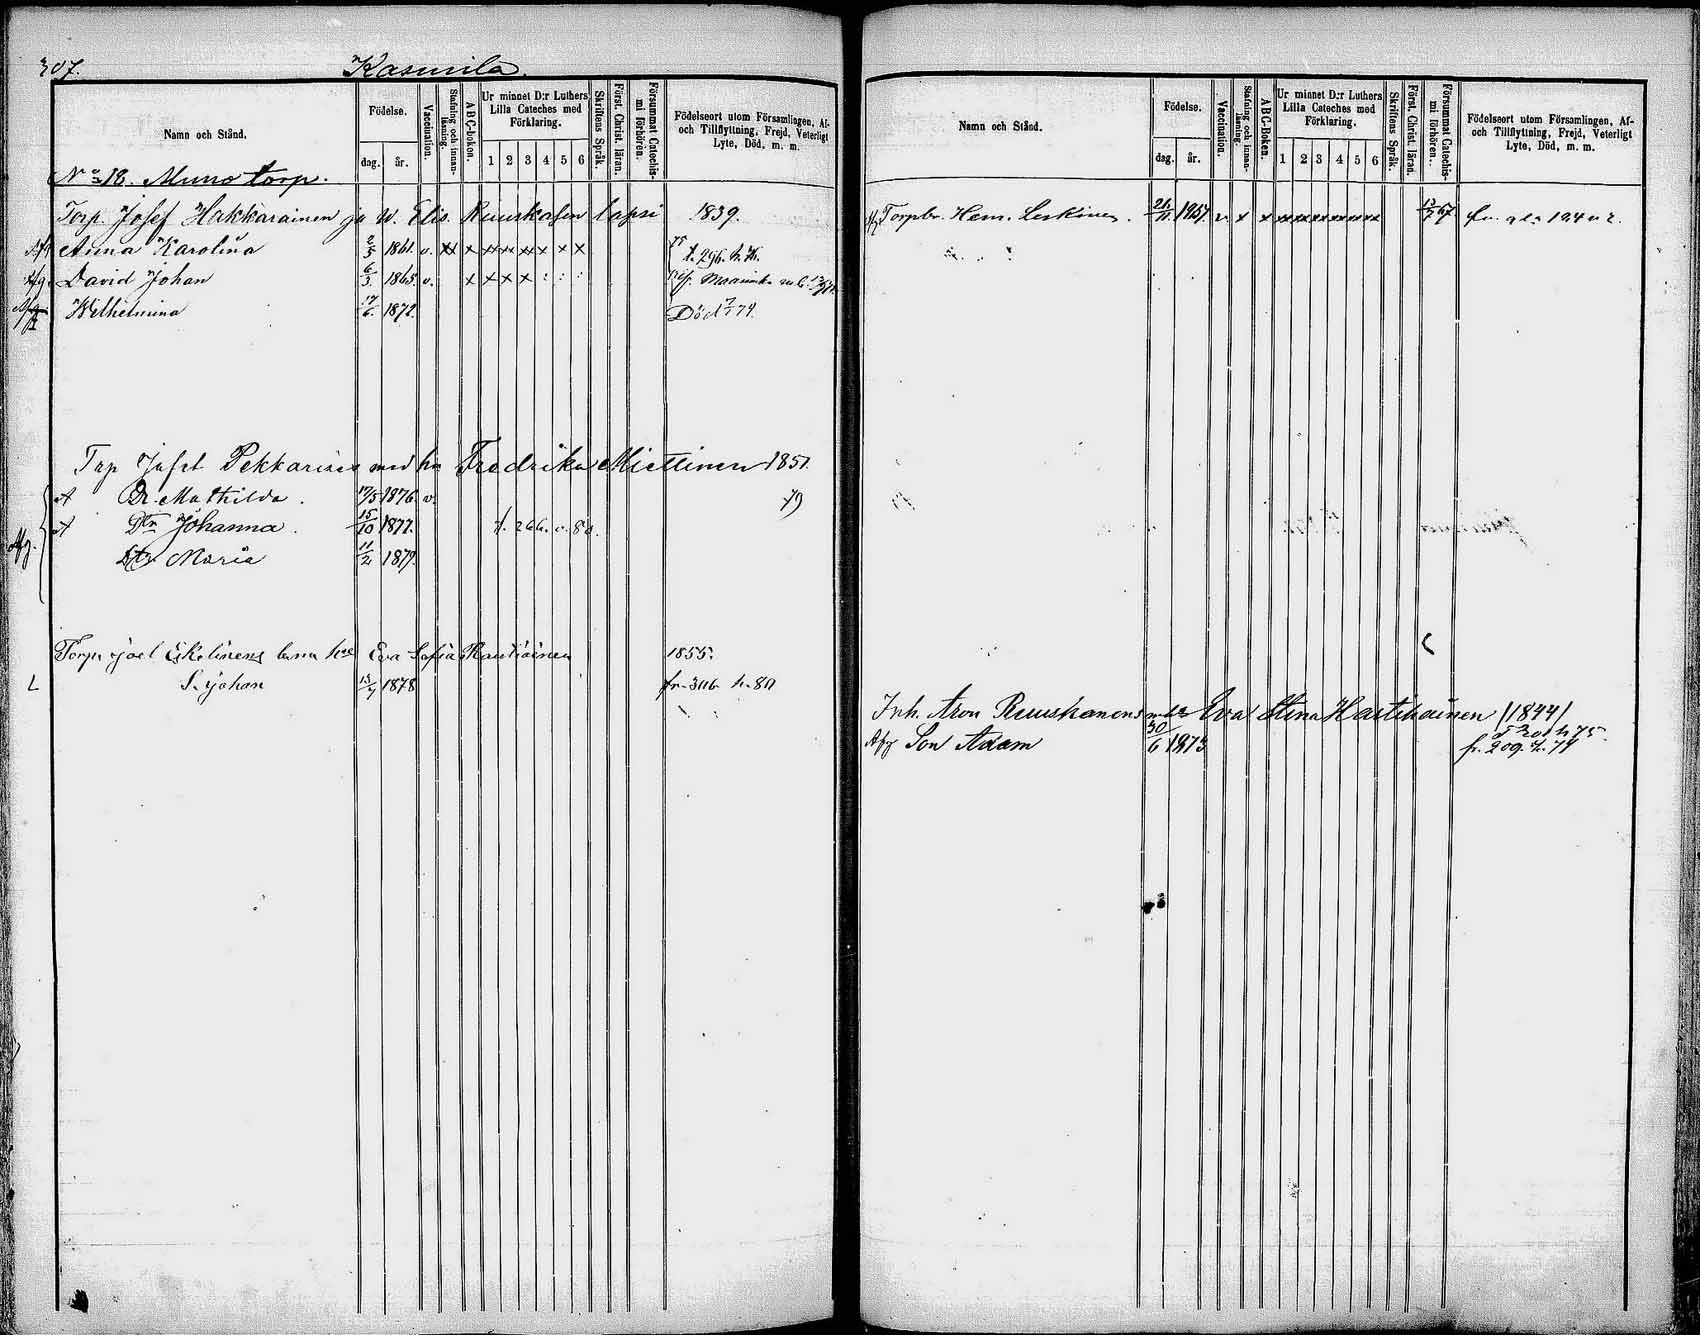 307.
Kasurila.
Namn och Stånd.
Födelse.
dag.
år.
Vaccination.
Stafning och innan-läsning.
ABC-boken.
Ur minnet D:r Luthers
Lilla Cateches med
Förklaring.
1 2 3 4 5 6
Skriftens Språk.
Först. Christ. läran.
Försummat Catechis-
mi förhören.
Födelseort utom Församlingen, Af-
och Tillflyttning, Frejd, Veterligt
Lyte, Död, m. m.
No 18. Muno torp.
Torp. Josef Hakkarainen ja W. Elis. Ruuskasen lapsi 1839.
Anna Karolina 2/5 1861. v. xx x xx xx xx x x x t. 296. h. 76.
Afg. David Johan 6/3 1865. v. x x x x : : : Maaninka
Wilhelmina 17/6 1872 Död 74.
Torp Josef Pekkarises med hu Fredrika Miettinen 1851.
Dr. Mathilda. 17/5 1876. v. 79
Afg. Dtr Johanna. 15/10 1877. t. 266. v. 80.
Dtr Maria 11/2 1879.
Torp. Joel Eskelinens barn Eva Sofia Rautiainen 1855.
S. Johan 1878 fr. 306. h. 80
Namn och Stånd.
Födelse.
dag.
år.
Vaccination.
Stafning och innan-läsning.
ABC-Boken.
Ur minnet D:r Luthers
Lilla Cateches med
Förklaring.
1 2 3 4 5 6
Skriftens Språk.
Först. Christ. läran.
Försummat Catechis-
mi förhören.
Födelseort utom Församlingen, Af-
och Tillflyttning, Frejd, Veterligt
Lyte, Död, m. m.
Torpbr. Hem. Leskinen. 21/11 1857 v x x xx xx xx xx xx xx 67
Inh. Aron Ruuskanens Eva Stina Hartikainen /1844/
Afg Son Adam 30/6 1873 fr. 209. h. 74